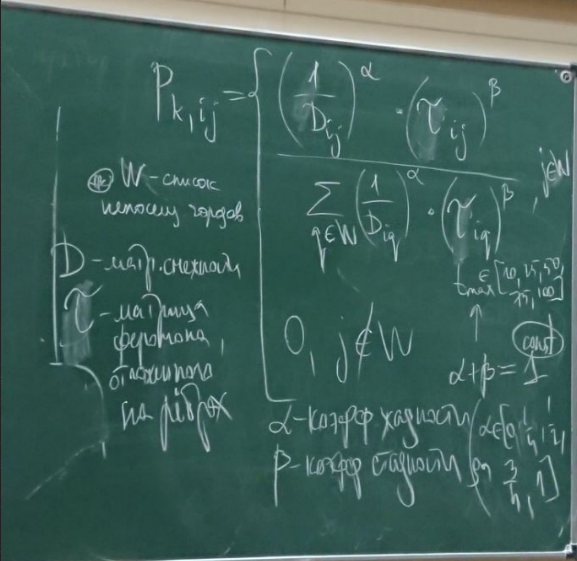 P_{k,ij} = { (1/D_{ij})^α · (τ_{ij})^β / Σ_{q∈W} (1/D_{iq})^α · (τ_{iq})^β , j∈W
0, j∉W
W - список
непосещ городов
D - матр. смежности
τ - матрица
феромона,
отложенного
на рёбрах
t_{max} ∈ [10, 25, 50,
75, 100]
↑ const
α+β = 1
α - коэфф жадности
β - коэфф стадности
(α∈[0, 1/4, 1/2,
3/4, 1]